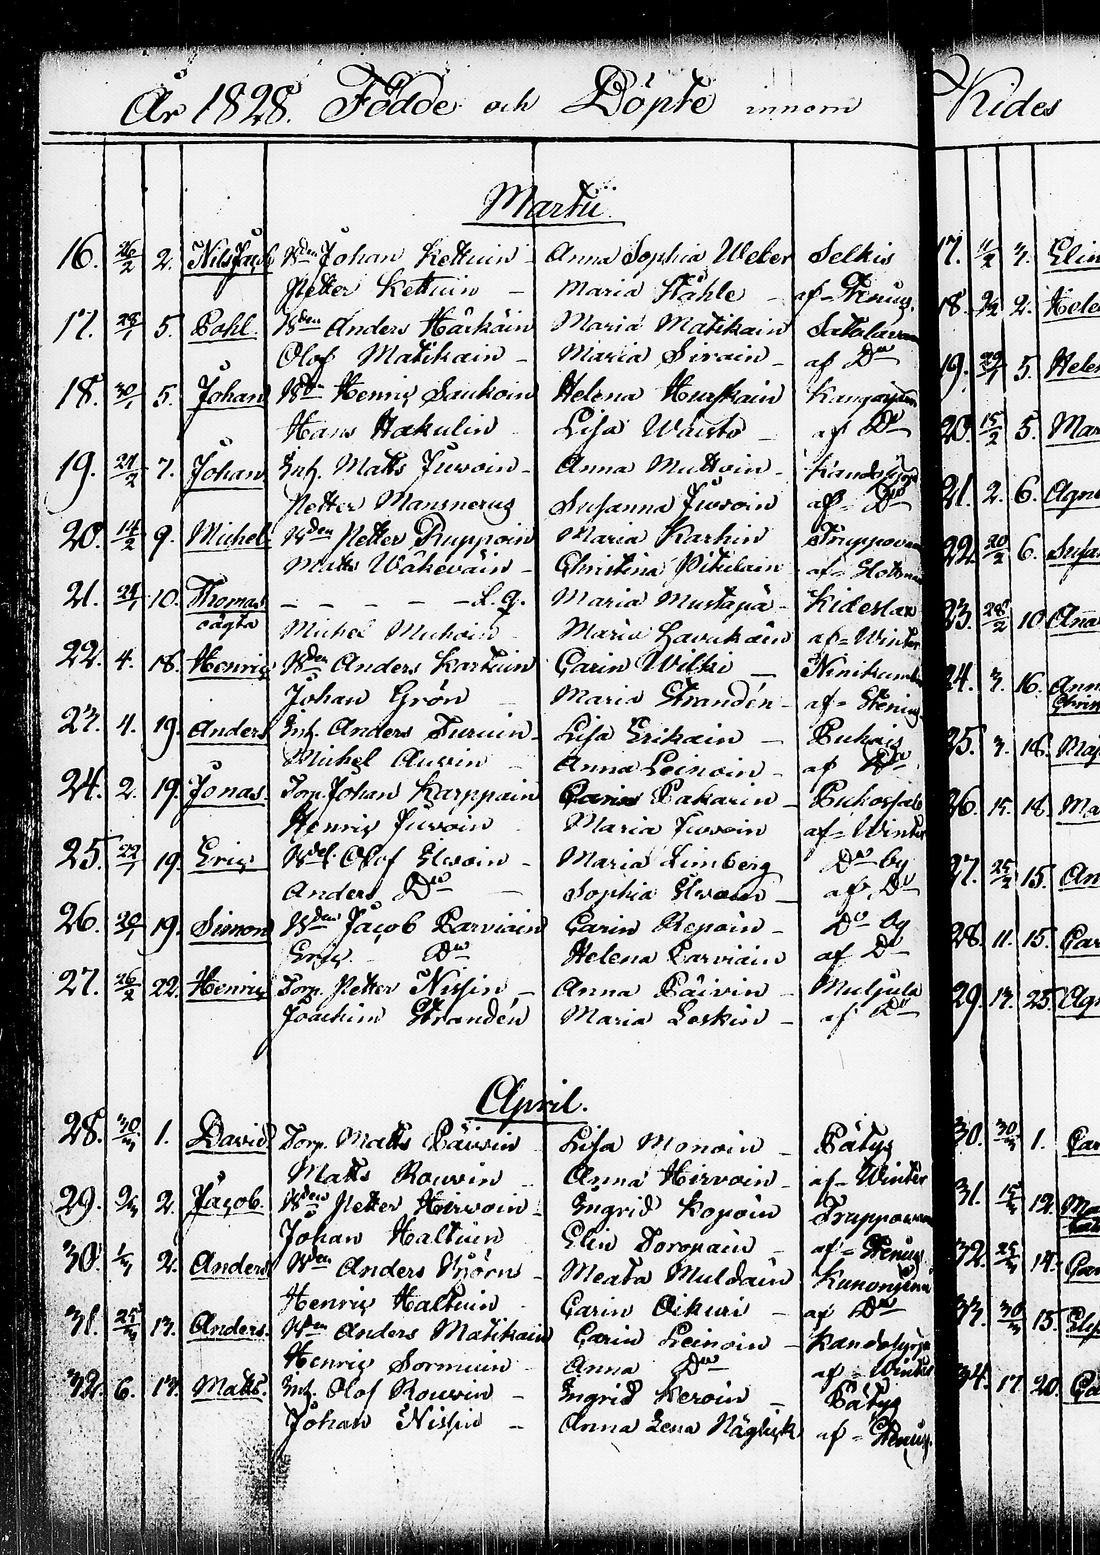 År 1828. Födde och Döpte innom Kides
Martii.
16. 26/2 2. Nils Jacob Bden Johan Kettuin - Anna Sophia Weber Selkis
Petter Kettuin - Maria Ståhle - af - Stenius.
17. 5. Påhl. Bden Anders Härkäin Maria Matikain
Olof Matikain - Maria Sirain - af Do
18. 30/1 5. Johan Henric Saukoin Helena Hurskain
Hans Hakulin Lisa Waisto - af Do
19. 7. Johan Inh. Matts Juvoin - Anna Muttoin -
Petter Mansnerus Susanna Juvoin af - Do
20. 14/2 9. Michel Bden Petter Ruppoin Maria Karhin
Matts Wäkeväin - Christina Pitkäin af -
21. 10. Thomas - - - - - L. q. Maria Mustapä - Kideslax
oägta Michel Muhoin Maria Havukain af - Winter
22. 4. 18. Henric Bden Anders Kartuin Carin Wilki - Niinikumbu
Johan Grön - Maria Strandén - af - Stenius
23. 4. 19. Anders Inh. Anders Turuin - Lisa Erikain - Puhois
Michel Auvin - Anna Leinoin - af Do
24. 2. 19. Jonas. Torp. Johan Karppain Pakarin -
Henric Juvoin Maria Juvoin af - Winter
25. 19. Eric Olof Elvoin - Maria Limberg Do by
Anders Do - Sophia Elvoin - af Do
26. 19. Simon Bden Jacob Parviain Carin Repoin - Do by
Eric Do Helena Parviain af Do
27. 26/2 22. Henric Torp. Petter Nissin - Anna Päivin - Muljula
Joachim Strandén Maria Loskin - af Do
April.
28. 30/3 1. David Torp. Matts Päivin - Lisa Monoin - Pätys
Matts Rouvin - Anna Hirvoin - af - Winter
29. 2. Jacob. Bden Petter Hirvoin - Ingrid Kopoin
Johan Haltuin Elin Toropain - af - Stenius
30. 1/3 2. Anders Bden Anders Björn - Meata Muldain
Henric Haltuin Carin Oikuri - af Do
31. 25/3 13. Anders. Bden Anders Matikain Carin Leinoin -
Henric Sormuin - Anna Do af - Winter
32. 6. 13. Matts. Inh. Olof Rouvin - Ingrid Keroin - Pätys
Johan Nissin - Anna Lena af - Stenius
17. 11/2 3. Elin
18. 2. Helen
19. 5. Helen
20. 15/2 5. Mar
21. 2. 6. Agn
22. 20/2 6. Susa
23. 28/2 10. Ana
24. 3. 16. Ann
25. 3. 18. Maj
26. 15. 18. Ma
27. 15. An
28. 11. 15. Car
29. 13. 25. Agn
30. 30/3 1. Car
31. 12. Ma
32. 14. Car
33. 30/3 15.
34. 17. 20. Ca